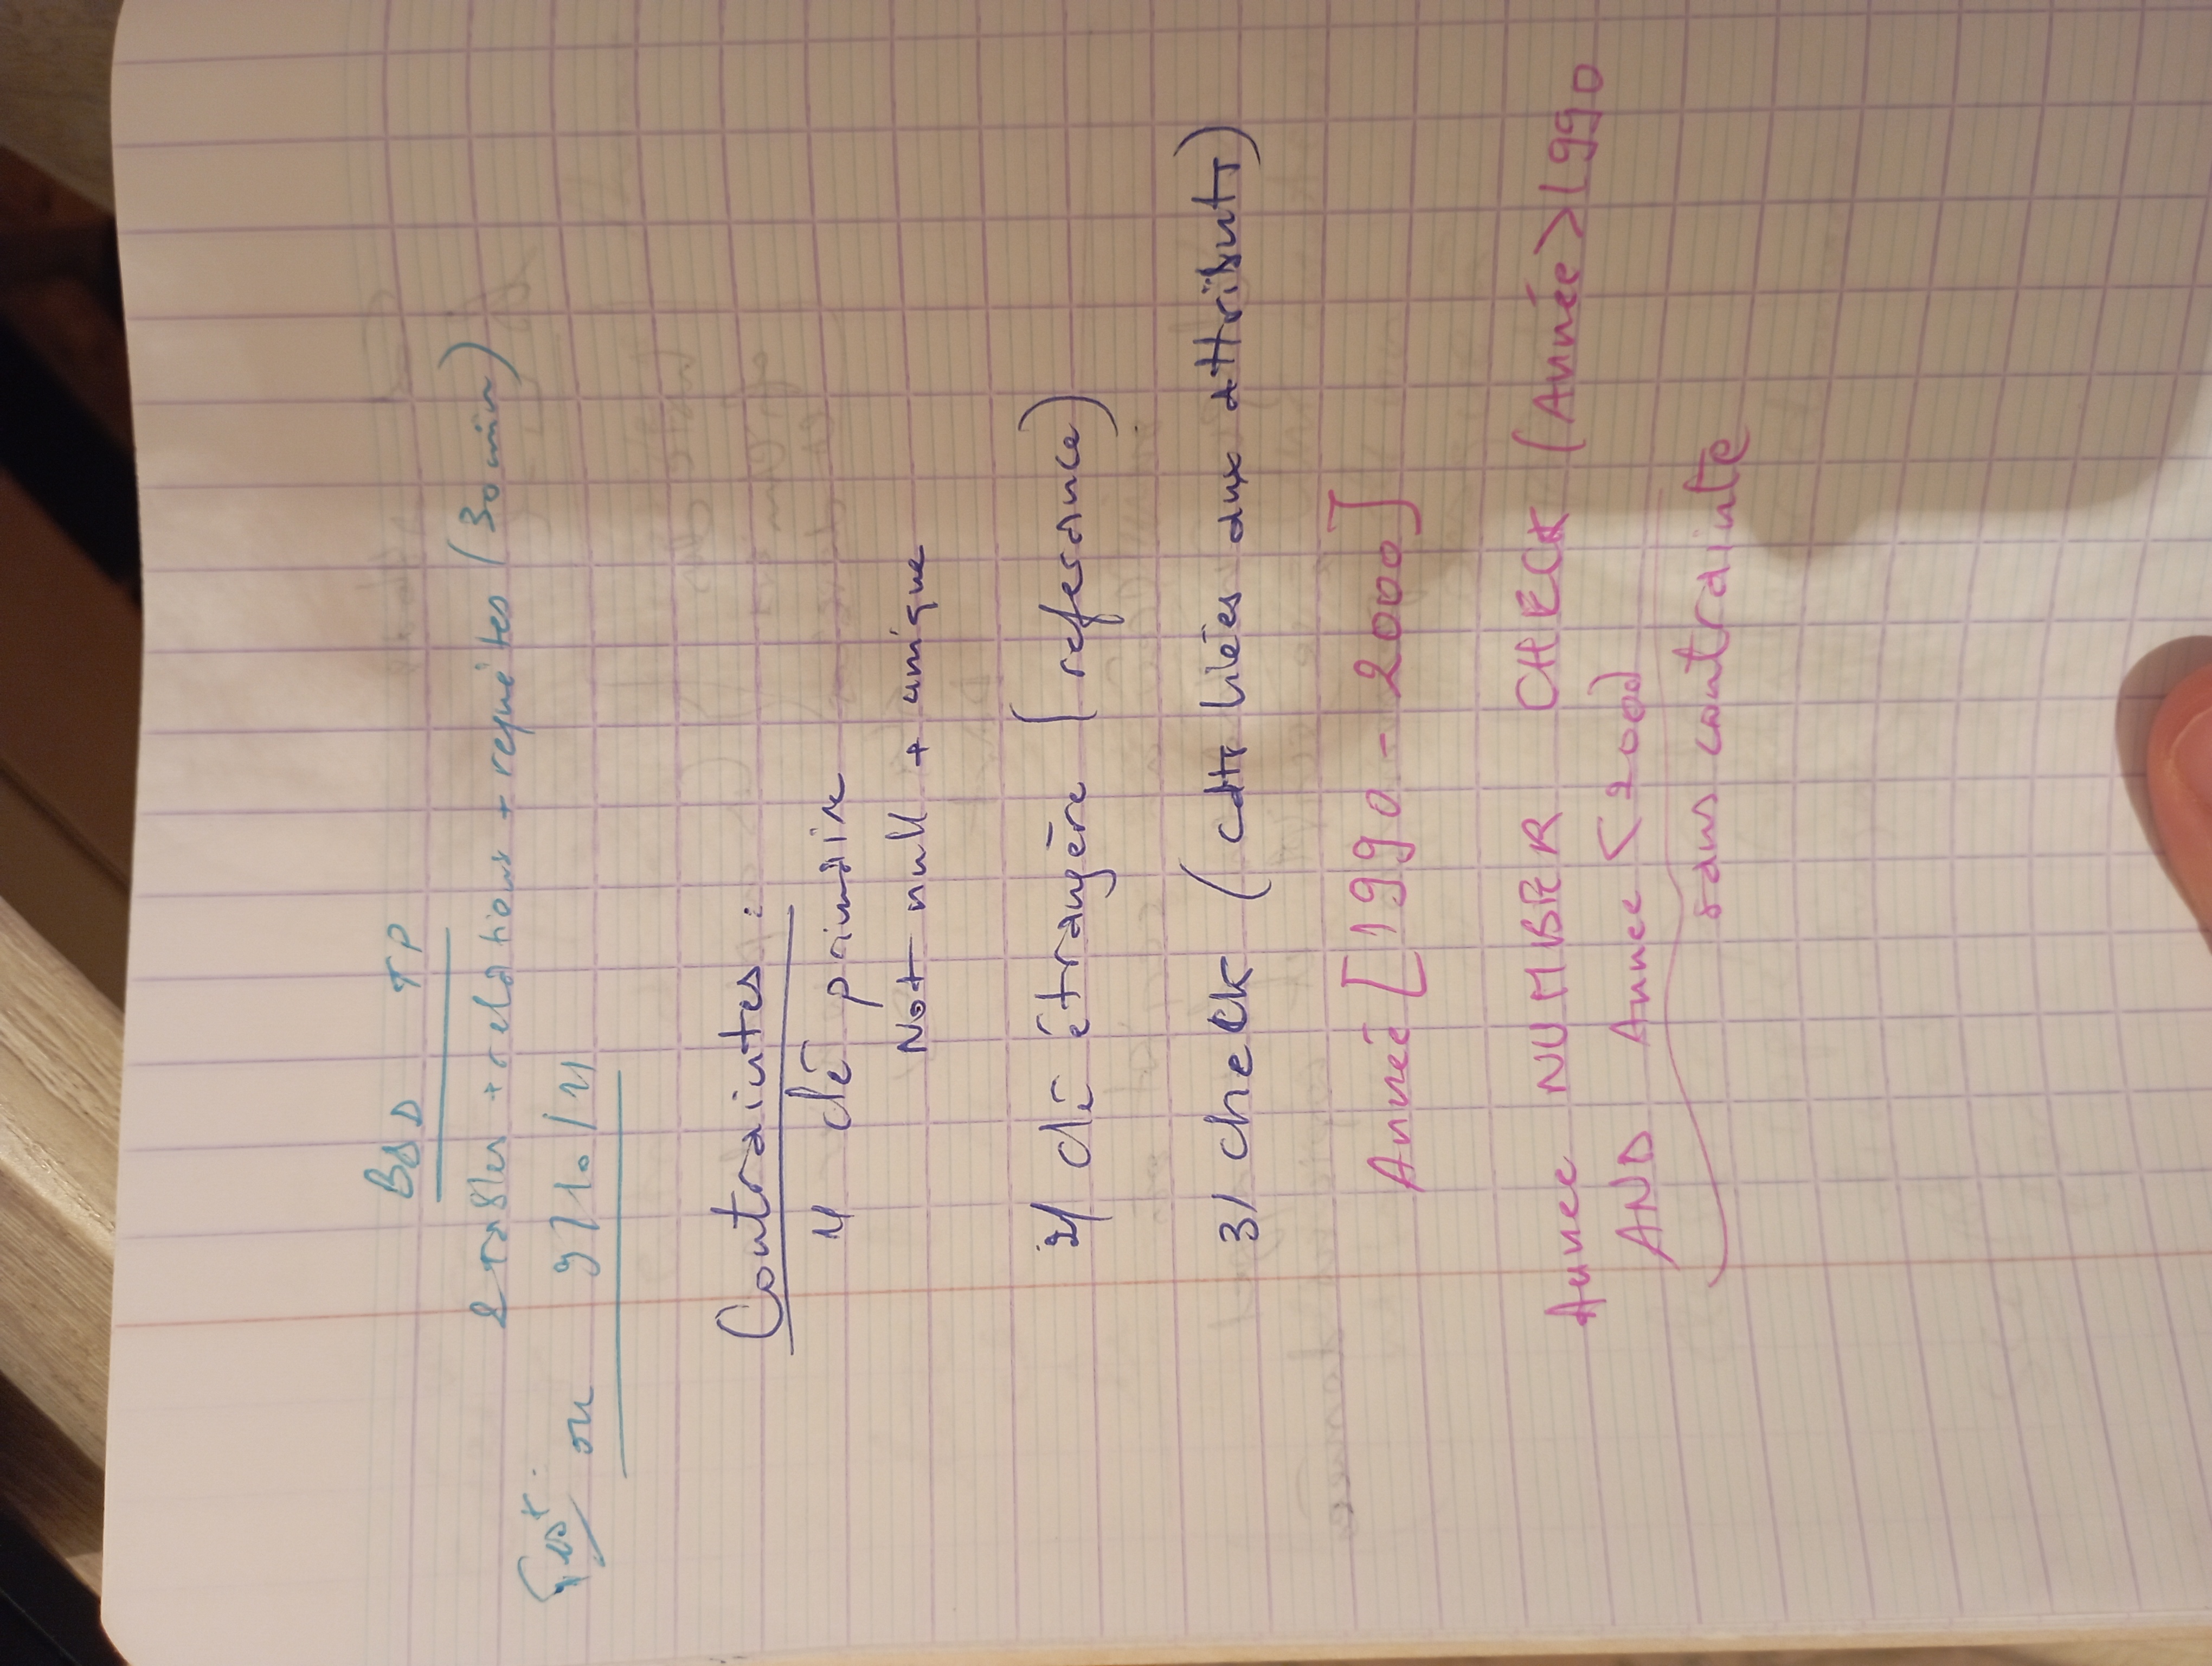 BdD TP
2 tables + relations + requêtes (30 min)
Test: ou 9/10/11
Contraintes :
1/ clé primaire
Not null + unique
2/ clé étrangère (reference)
3/ check (cdtt liées aux attributs)
Année [1990 - 2000]
Annee NUMBER CHECK (Année > 1990
AND Annee < 2000)
sans contrainte